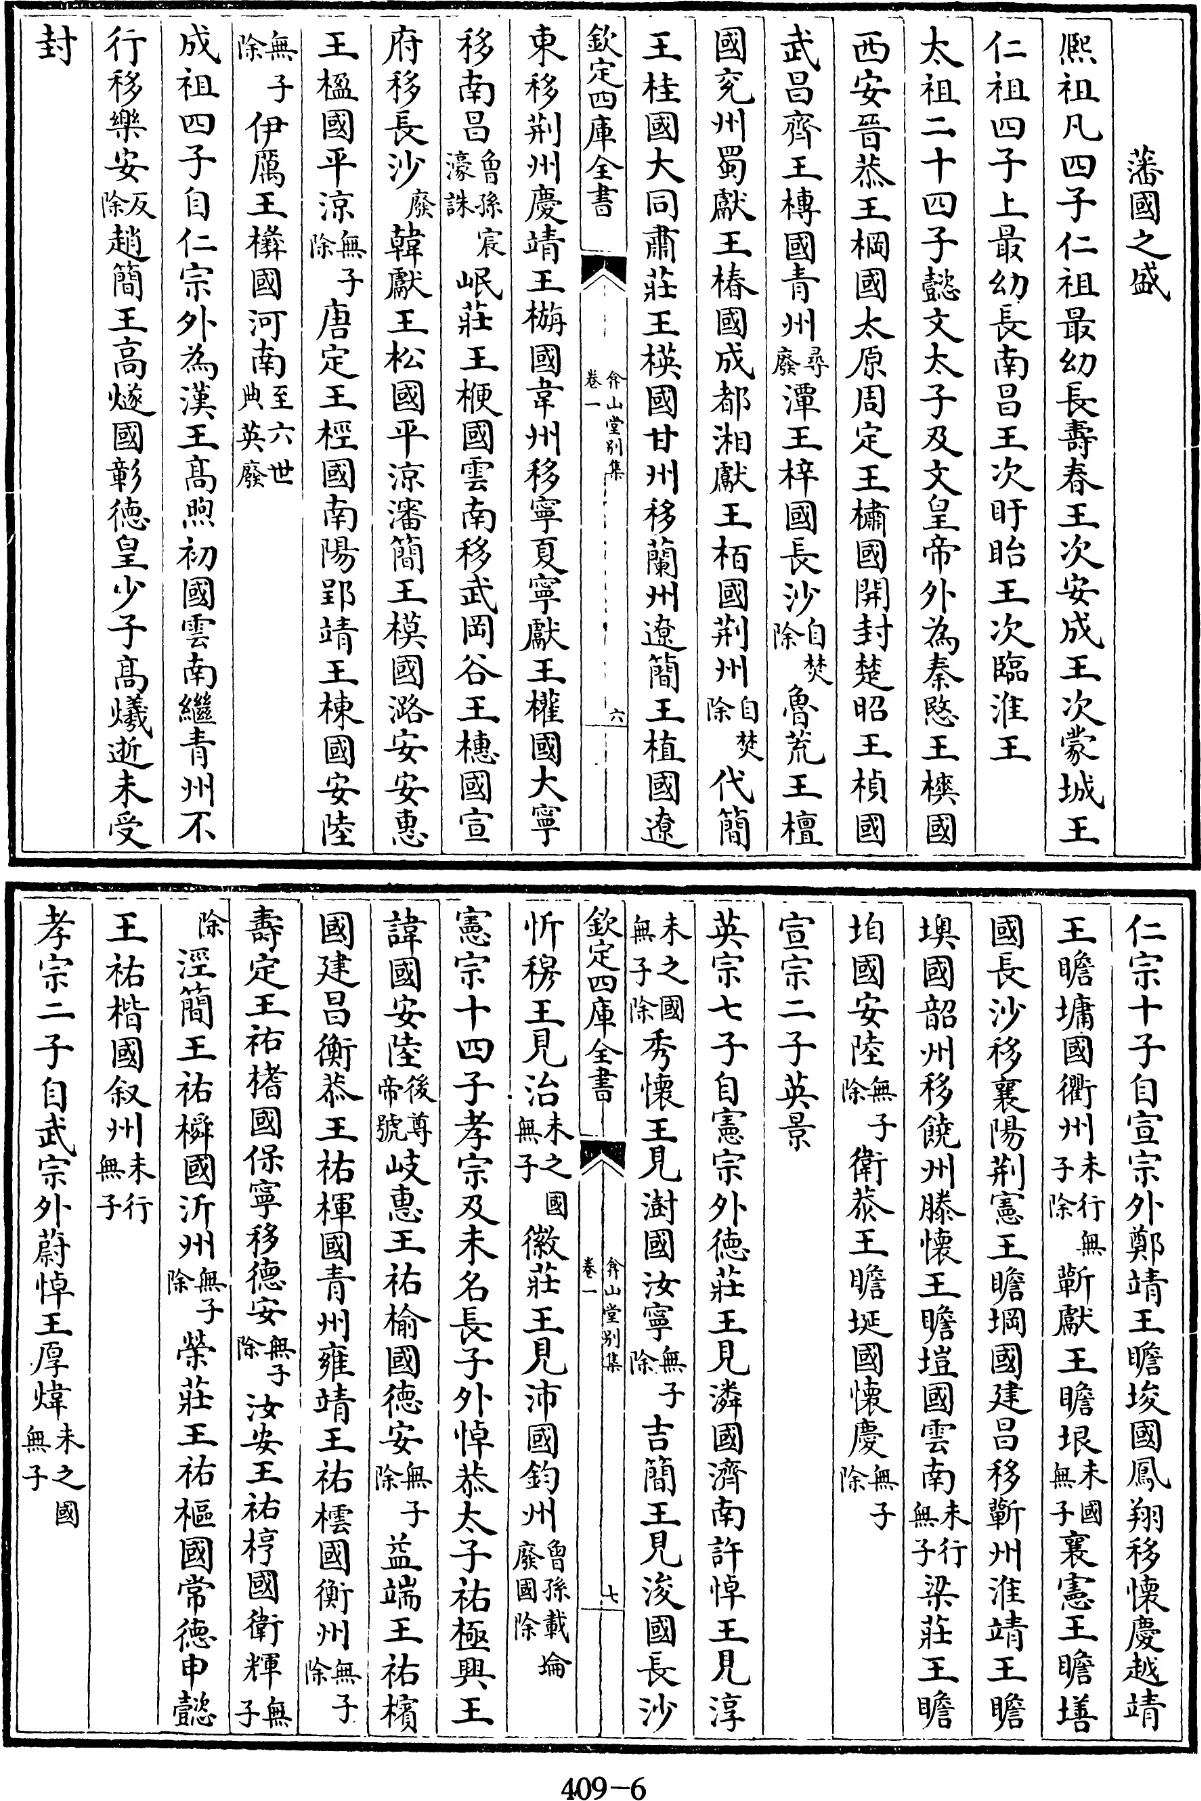 藩國之盛
熈祖凡四子仁祖最幼長壽春王次安成王次蒙城王
仁祖四子上最幼長南昌王次盱眙王次臨淮王
太祖二十四子懿文太子及文皇帝外為秦愍王樉國
西安晉恭王棡國太原周定王橚國開封楚昭王楨國
武昌齊王榑國青州尋廢潭王梓國長沙自焚除魯荒王檀
國兖州蜀獻王椿國成都湘獻王栢國荆州自焚除代簡
王桂國大同肅莊王楧國甘州移蘭州遼簡王植國遼
欽定四庫全書
弇山堂别集
卷一
六
東移荆州慶靖王㮵國韋州移寧夏寧獻王權國大寧
移南昌曾孫宸濠誅岷莊王楩國雲南移武岡谷王橞國宣
府移長沙廢韓獻王松國平涼瀋簡王模國潞安安惠
王楹國平涼無子除唐定王桱國南陽郢靖王棟國安陸
無子除伊厲王㰘國河南至六世典英廢
成祖四子自仁宗外為漢王髙煦初國雲南繼青州不
行移樂安反除趙簡王高燧國彰徳皇少子髙爔逝未受
封
仁宗十子自宣宗外鄭靖王瞻埈國鳳翔移懷慶越靖
王瞻墉國衢州未行無子除蘄獻王瞻垠未國無子襄憲王瞻墡
國長沙移襄陽荆憲王瞻堈國建昌移蘄州淮靖王瞻
墺國韶州移饒州滕懷王瞻塏國雲南未行無子梁莊王瞻
垍國安陸無子除衛恭王瞻埏國懷慶無子除
宣宗二子英景
英宗七子自憲宗外徳莊王見潾國濟南許悼王見淳
未之國無子除秀懷王見澍國汝寧無子除吉簡王見浚國長沙
欽定四庫全書
弇山堂别集
卷一
七
忻穆王見治未之國無子徽莊王見沛國鈞州曾孫載埨廢國除
憲宗十四子孝宗及未名長子外悼恭太子祐極興王
諱國安陸後尊帝號岐惠王祐榆國徳安無子除益端王祐檳
國建昌衡恭王祐楎國青州雍靖王祐橒國衡州無子除
壽定王祐榰國保寧移徳安無子除汝安王祐梈國衛輝無子
除涇簡王祐橓國沂州無子除榮莊王祐樞國常徳申懿
王祐楷國叙州未行無子
孝宗二子自武宗外蔚悼王厚煒未之國無子
409-6